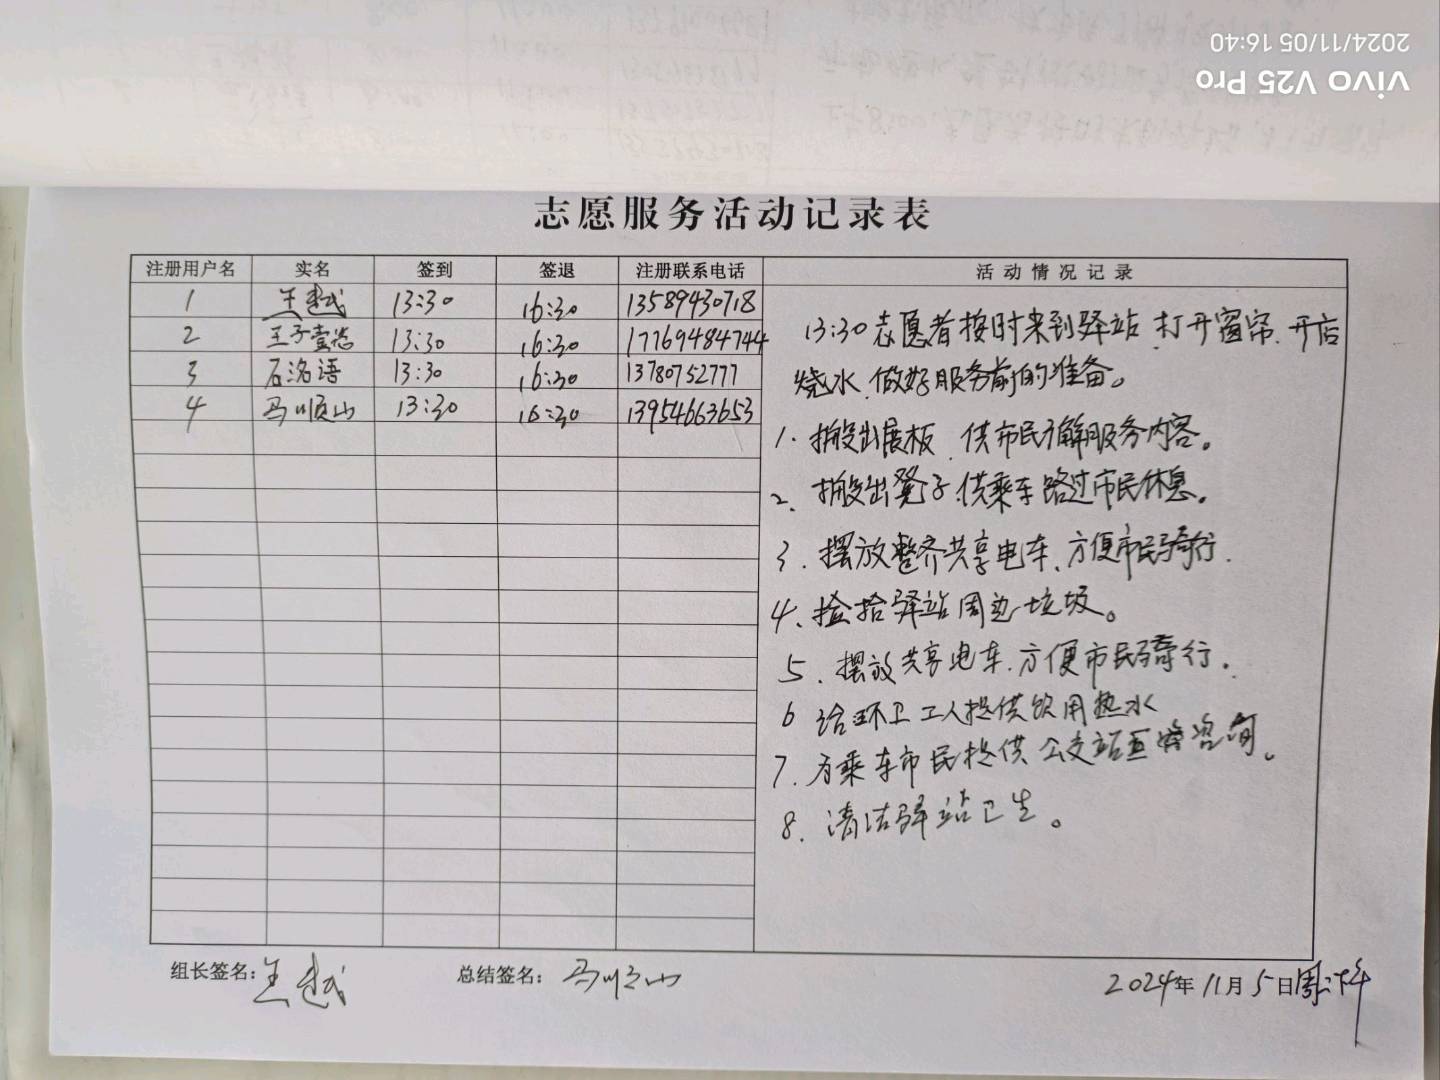 2024/11/05 16:40
vivo V25 Pro
志愿服务活动记录表
注册用户名 实名 签到 签退 注册联系电话 活动情况记录
1 王越 13:30 16:30 13589430718
2 王子壹 13:30 16:30 17769484744
3 石洺语 13:30 16:30 13780752777
4 马顺山 13:30 16:30 13954663653
13:30志愿者按时来到驿站,打开窗帘、开店
烧水、做好服务前的准备。
1. 搬出展板,供市民了解服务内容。
2、搬出凳子,供乘车路过市民休息。
3. 摆放整齐共享电车、方便市民骑行.
4、捡拾驿站周边垃圾。
5. 摆放共享电车.方便市民骑行.
6 给环卫工人提供饮用热水
7. 为乘车市民提供公交站 咨询。
8. 清洁驿站卫生。
组长签名:王越 总结签名:马顺山 2024年11月5日周二下午